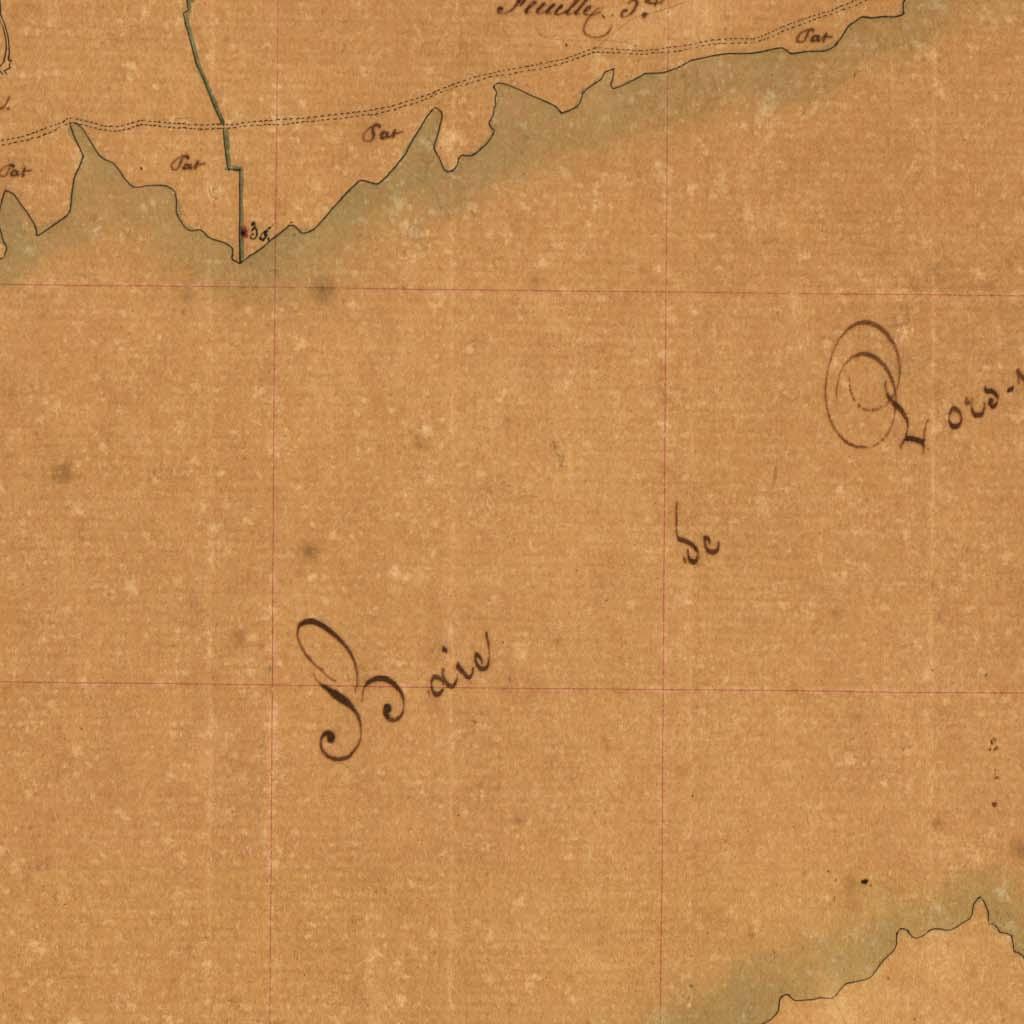 Feuille 3.e
Pat
Pat
Pat
Pat
35.
Baie de Lord-